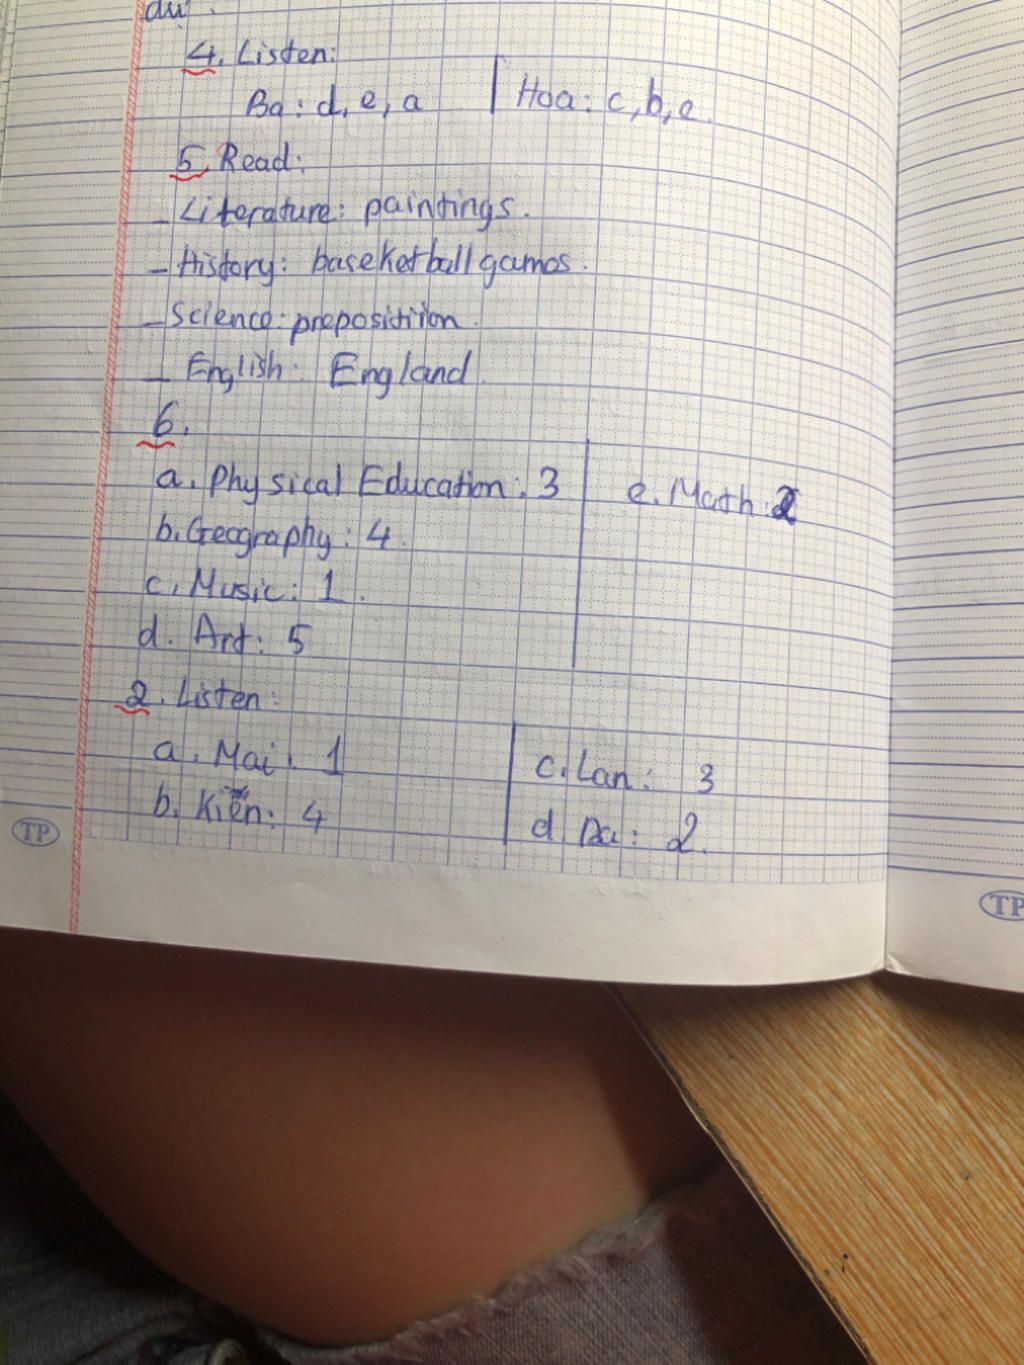 du.
4. Listen:
Ba: d, e, a | Hoa: c, b, e.
5. Read:
- Literature: paintings.
- History: baseketball games.
- Science: preposichiion.
- English: England
6.
a. Physical Education: 3 | e. Math: 2
b. Geography: 4.
c. Music: 1.
d. Art: 5
2. Listen:
a. Mai: 1 | c. Lan: 3
b. Kiên: 4 | d. Ba: 2.
TP
TP